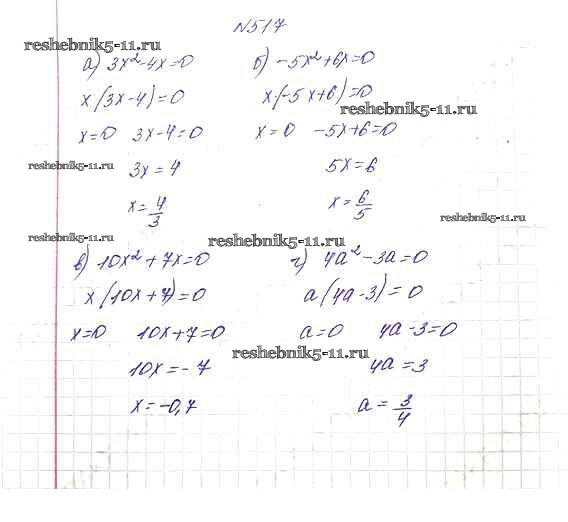 N517
reshebnik5-11.ru
а) 3x²-4x=0 б) -5x²+6x=0
x(3x-4)=0 x·(-5x+6)=0
reshebnik5-11.ru
x=0 3x-4=0 x=0 -5x+6=0
reshebnik5-11.ru
3x=4 5x=6
x=4/3 x=6/5
reshebnik5-11.ru
reshebnik5-11.ru reshebnik5-11.ru
в) 10x²+7x=0 г) 4a²-3a=0
x(10x+7)=0 a(4a-3)=0
x=0 10x+7=0 a=0 4a-3=0
reshebnik5-11.ru
10x=-7 4a=3
x=-0,7 a=3/4
reshebnik5-11.ru
reshebnik5-11.ru